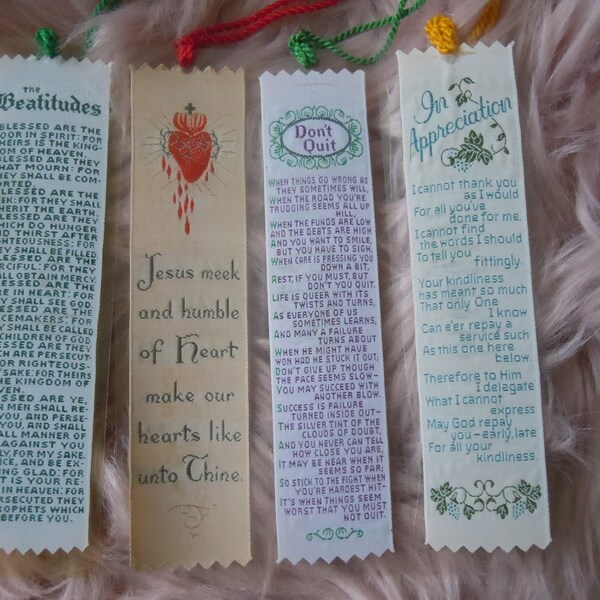 The
Beatitudes
BLESSED ARE THE
OOR IN SPIRIT: FOR
HEIRS IS THE KING-
OM OF HEAVEN.
BLESSED ARE THEY
HAT MOURN: FOR
HEY SHALL BE COM-
ORTED.
ESSED ARE THE
EEK: FOR THEY SHALL
HERIT THE EARTH.
ESSED ARE THEY
HICH DO HUNGER
ND THIRST AFTER
GHTEOUSNESS: FOR
EY SHALL BE FILLED
ESSED ARE THE
RCIFUL: FOR THEY
ALL OBTAIN MERCY.
ESSED ARE THE
RE IN HEART: FOR
EY SHALL SEE GOD.
ESSED ARE THE
ACEMAKERS: FOR
Y SHALL BE CALLED
CHILDREN OF GOD.
ESSED ARE THEY
CH ARE PERSECUT-
FOR RIGHTEOUS-
SAKE: FOR THEIRS
HE KINGDOM OF
VEN.
ESSED ARE YE,
N MEN SHALL RE-
YOU, AND PERSE-
YOU, AND SHALL
ALL MANNER OF
AGAINST YOU
LY, FOR MY SAKE.
ICE, AND BE EX-
ING GLAD: FOR
T IS YOUR RE-
IN HEAVEN: FOR
RSECUTED THEY
ROPHETS WHICH
BEFORE YOU.
Jesus meek
and humble
of Heart
make our
hearts like
unto Thine.
Don't
Quit
WHEN THINGS GO WRONG AS
THEY SOMETIMES WILL,
WHEN THE ROAD YOU'RE
TRUDGING SEEMS ALL UP
HILL,
WHEN THE FUNDS ARE LOW
AND THE DEBTS ARE HIGH
AND YOU WANT TO SMILE,
BUT YOU HAVE TO SIGH,
WHEN CARE IS PRESSING YOU
DOWN A BIT,
REST, IF YOU MUST, BUT
DON'T YOU QUIT.
LIFE IS QUEER WITH ITS
TWISTS AND TURNS,
AS EVERYONE OF US
SOMETIMES LEARNS,
AND MANY A FAILURE
TURNS ABOUT
WHEN HE MIGHT HAVE
WON HAD HE STUCK IT OUT;
DON'T GIVE UP THOUGH
THE PACE SEEMS SLOW—
YOU MAY SUCCEED WITH
ANOTHER BLOW.
SUCCESS IS FAILURE
TURNED INSIDE OUT—
THE SILVER TINT OF THE
CLOUDS OF DOUBT.
AND YOU NEVER CAN TELL
HOW CLOSE YOU ARE,
IT MAY BE NEAR WHEN IT
SEEMS SO FAR;
SO STICK TO THE FIGHT WHEN
YOU'RE HARDEST HIT—
IT'S WHEN THINGS SEEM
WORST THAT YOU MUST
NOT QUIT.
In
Appreciation
I cannot thank you
as I would
For all you've
done for me,
I cannot find
the words I should
To tell you
fittingly.
Your kindliness
has meant so much
That only One
I know
Can e'er repay a
service such
As this one here
below.
Therefore to Him
I delegate
What I cannot
express
May God repay
you—early, late
For all your
kindliness.